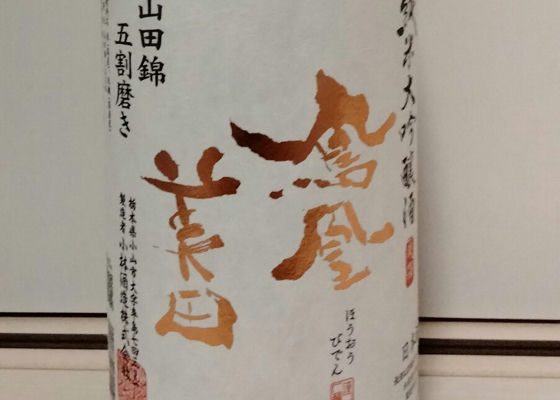 純米大吟醸酒
鳳凰
美田
ほうおう
びでん
山田錦
五割磨き
栃木県小山市大字卒島
製造者 小林酒造株式会社